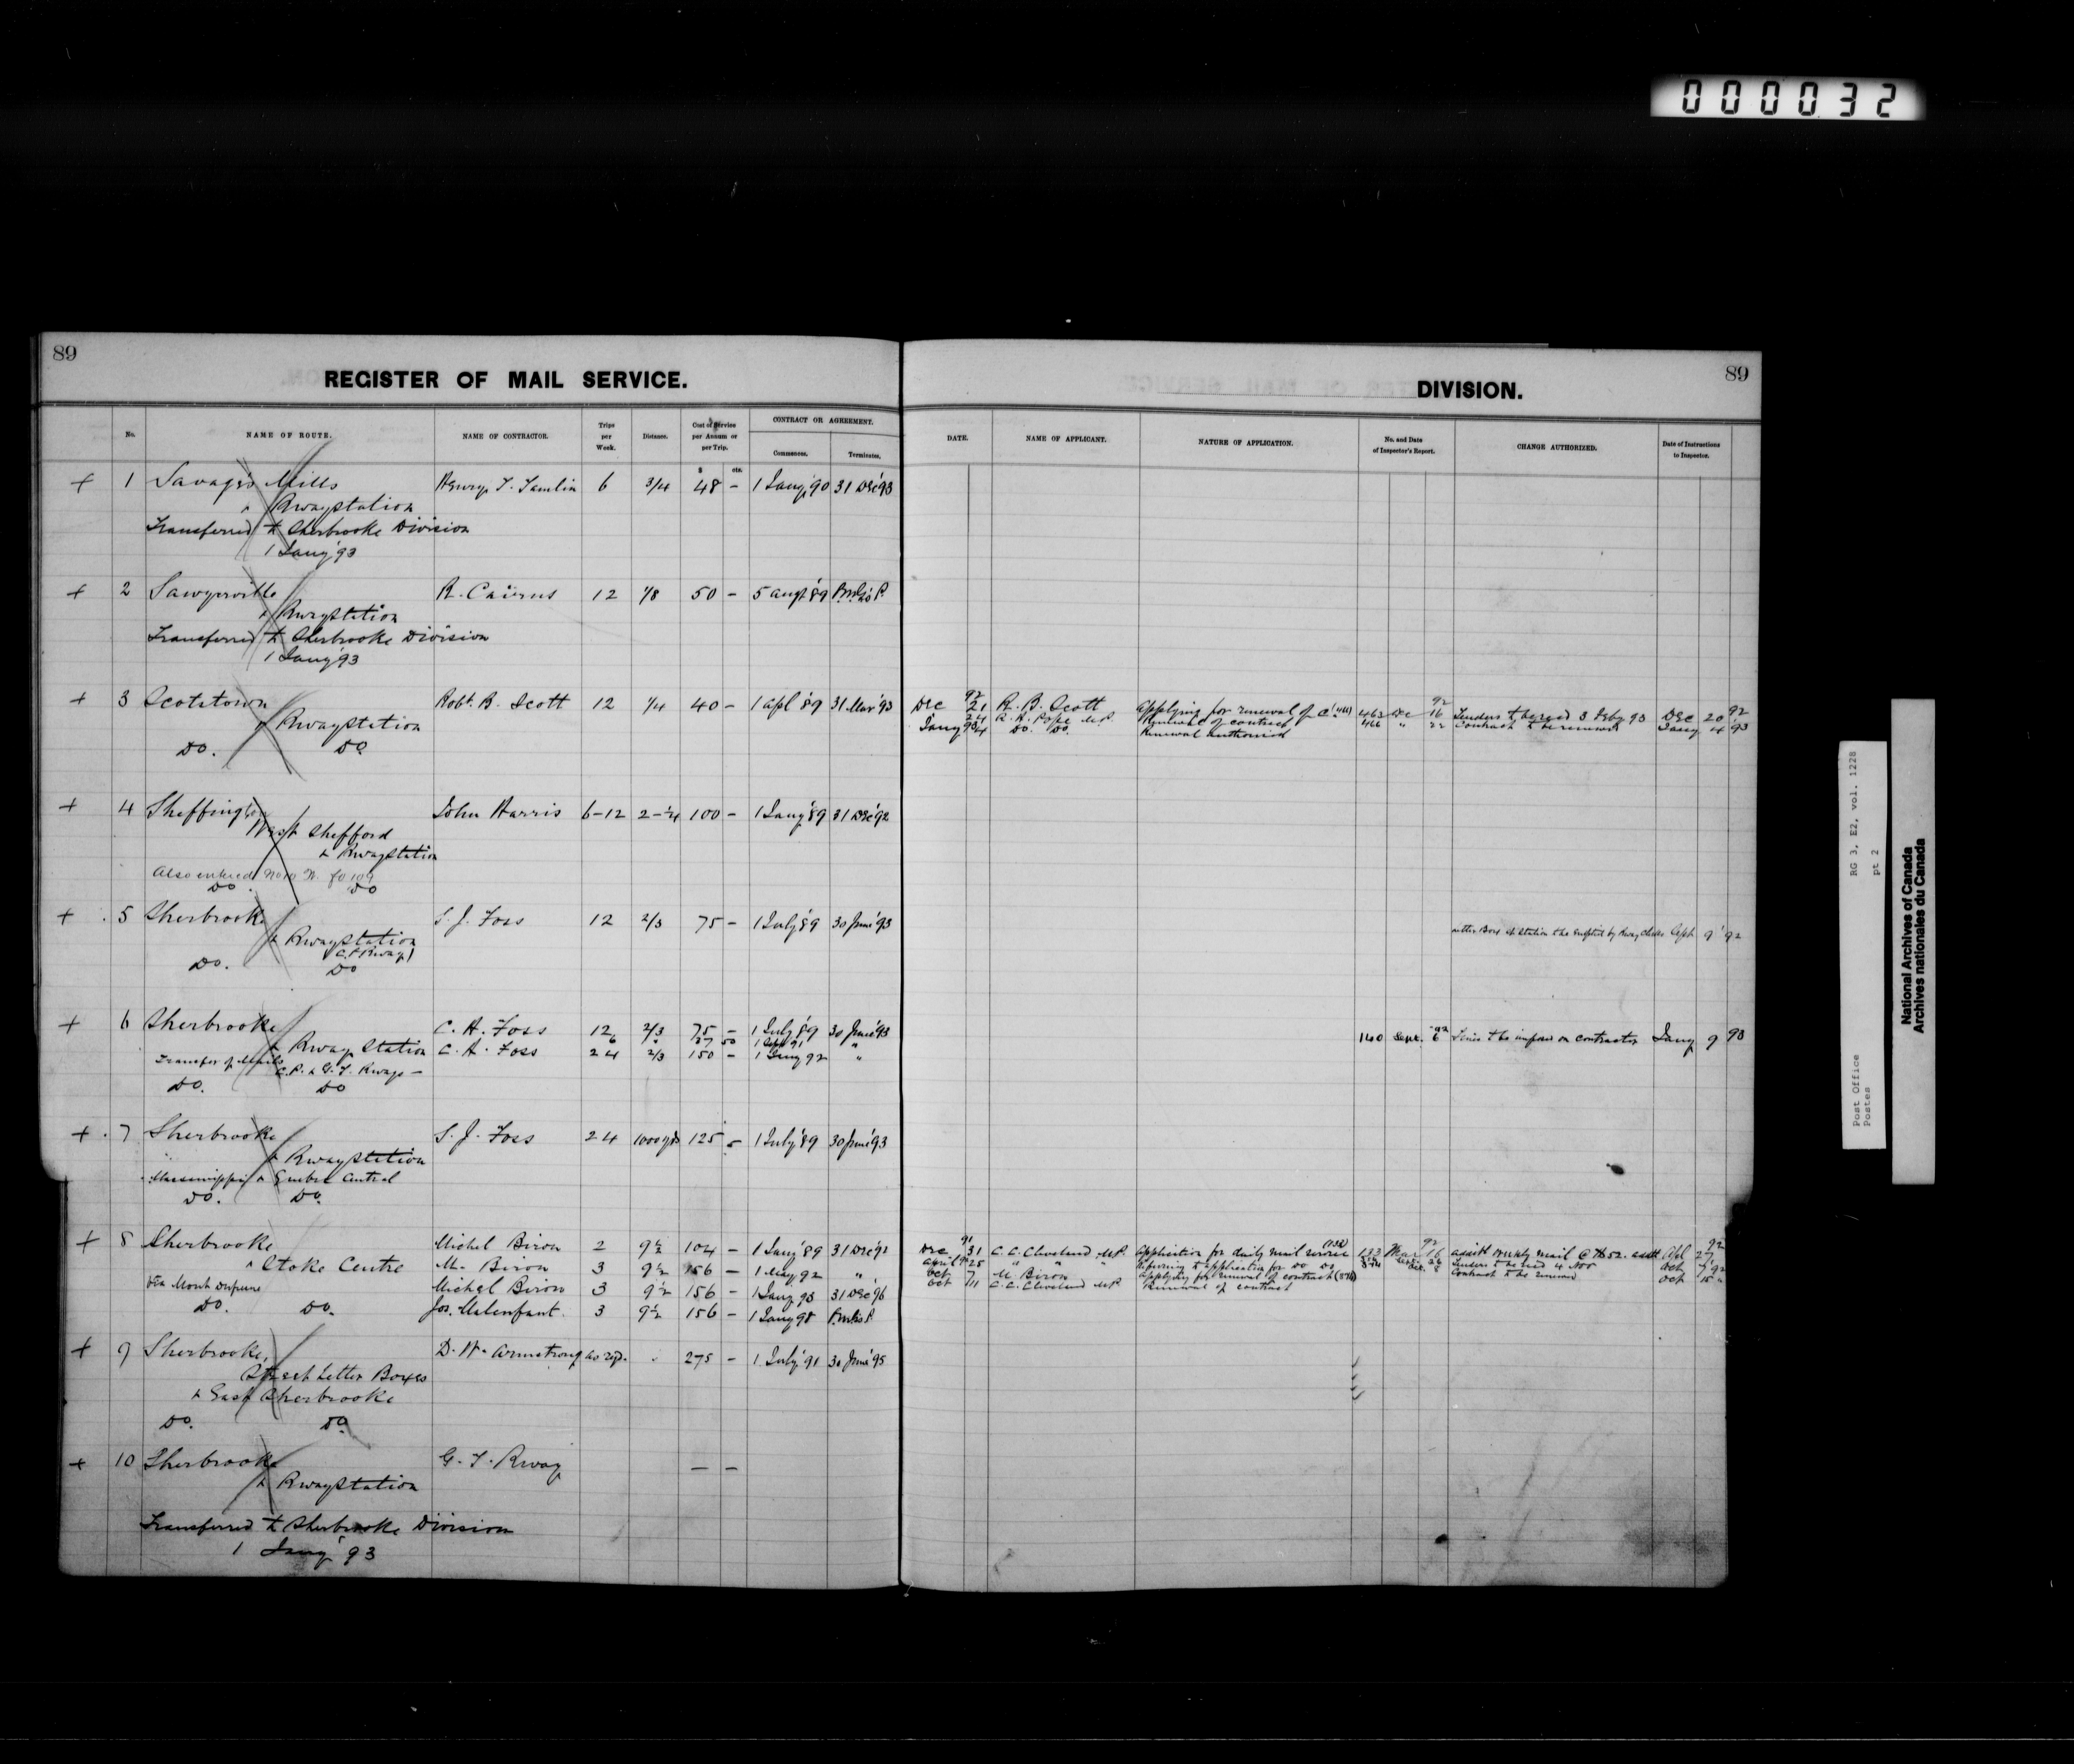 000032
89
REGISTER OF MAIL SERVICE.
No.
NAME OF ROUTE.
NAME OF CONTRACTOR.
Trips per Week.
Distance.
Cost of Service per Annum or per Trip.
CONTRACT OR AGREEMENT.
Commences.
Terminates.
$ cts.
+ 1 Savage's Mills Henry T. Tamlin 6 3/4 48 - 1 Jany '90 31 Dec '93
& Rwaystation
Transferred to Sherbrooke Division
1 Jany '93
+ 2 Sawyerville R. Cairns 12 1/8 50 - 5 Augt '89
& Rwaystation
Transferred to Sherbrooke Division
1 Jany '93
+ 3 Scotstown Robt. B. Scott 12 1/4 40 - 1 Apl '89 31 Mar '93
& Rwaystation
Do. Do.
+ 4 Sheffington John Harris 6-12 2-1/4 100 - 1 Jany '89 31 Dec '92
West Shefford
& Rwaystation
Also entered No 10 W. fo 109
Do Do
+ 5 Sherbrooke S. J. Foss 12 2/3 75 - 1 July '89 30 June '93
& Rwaystation
(C.P. Rway)
Do. Do
+ 6 Sherbrooke C. H. Foss 12 2/3 75 - 1 July '89 30 June '93
6 37 50 1 Sept 91 "
& Rway Station C. H. Foss 24 2/3 150 - 1 Jany 92 "
Transfer of Mails
C.P. & G.T. Rways -
Do. Do
+ 7 Sherbrooke S. J. Foss 24 1000 yds 125 - 1 July '89 30 June '93
& Rwaystation
Massawippi & Quebec Central
Do. Do.
+ 8 Sherbrooke Michel Biron 2 9 1/2 104 - 1 Jany '89 31 Dec '92
& Stoke Centre M. Biron 3 9 1/2 156 - 1 May 92 "
Via Mont Dufrene Michel Biron 3 9 1/2 156 - 1 Jany 93 31 Dec '96
Do. Do. Jos. Malenfant. 3 9 1/2 156 -
+ 9 Sherbrooke, D. W. Armstrong as reqd. 275 - 1 July '91 30 June '95
Street Letter Boxes
& East Sherbrooke
Do. Do.
+ 10 Sherbrooke G. T. Rway - -
& Rwaystation
Transferred to Sherbrooke Division
1 Jany '93
89
DIVISION.
DATE.
NAME OF APPLICANT.
NATURE OF APPLICATION.
No. and Date of Inspector's Report.
CHANGE AUTHORIZED.
Date of Instructions to Inspector.
92 92 92
Dec 21 R. B. Scott Applying for renewal of C. 463 Dec 16 Tenders to be recd 3 Feby 93 Dec 20
24 R. H. Pope M.P. Renewal of contract 466 " 22 Contract to be renewed Jany 4 93
Jany 93 4 Do. Do. Renewal authorized
Letter Box at station to be emptied by Rway Clerks Sept 9 '92
140 Sept. 6 92 Fines to be imposed on contractor Jany 9 93
91 92 92
Dec 31 C. C. Cleveland M.P. Application for daily mail service 133 Mar 16 assist weekly mail @ 7652. Apl 27
April 25 " " " Referring to application for Do Do Tenders to be recd 4 Nov Oct 7 92
Oct 7 M. Biron Applying for renewal of contract Contract to be renewed Oct 15 "
Oct 11 C. C. Cleveland M.P. Renewal of contract
RG 3, E2, vol. 1228
pt 2
Post Office
Postes
National Archives of Canada
Archives nationales du Canada